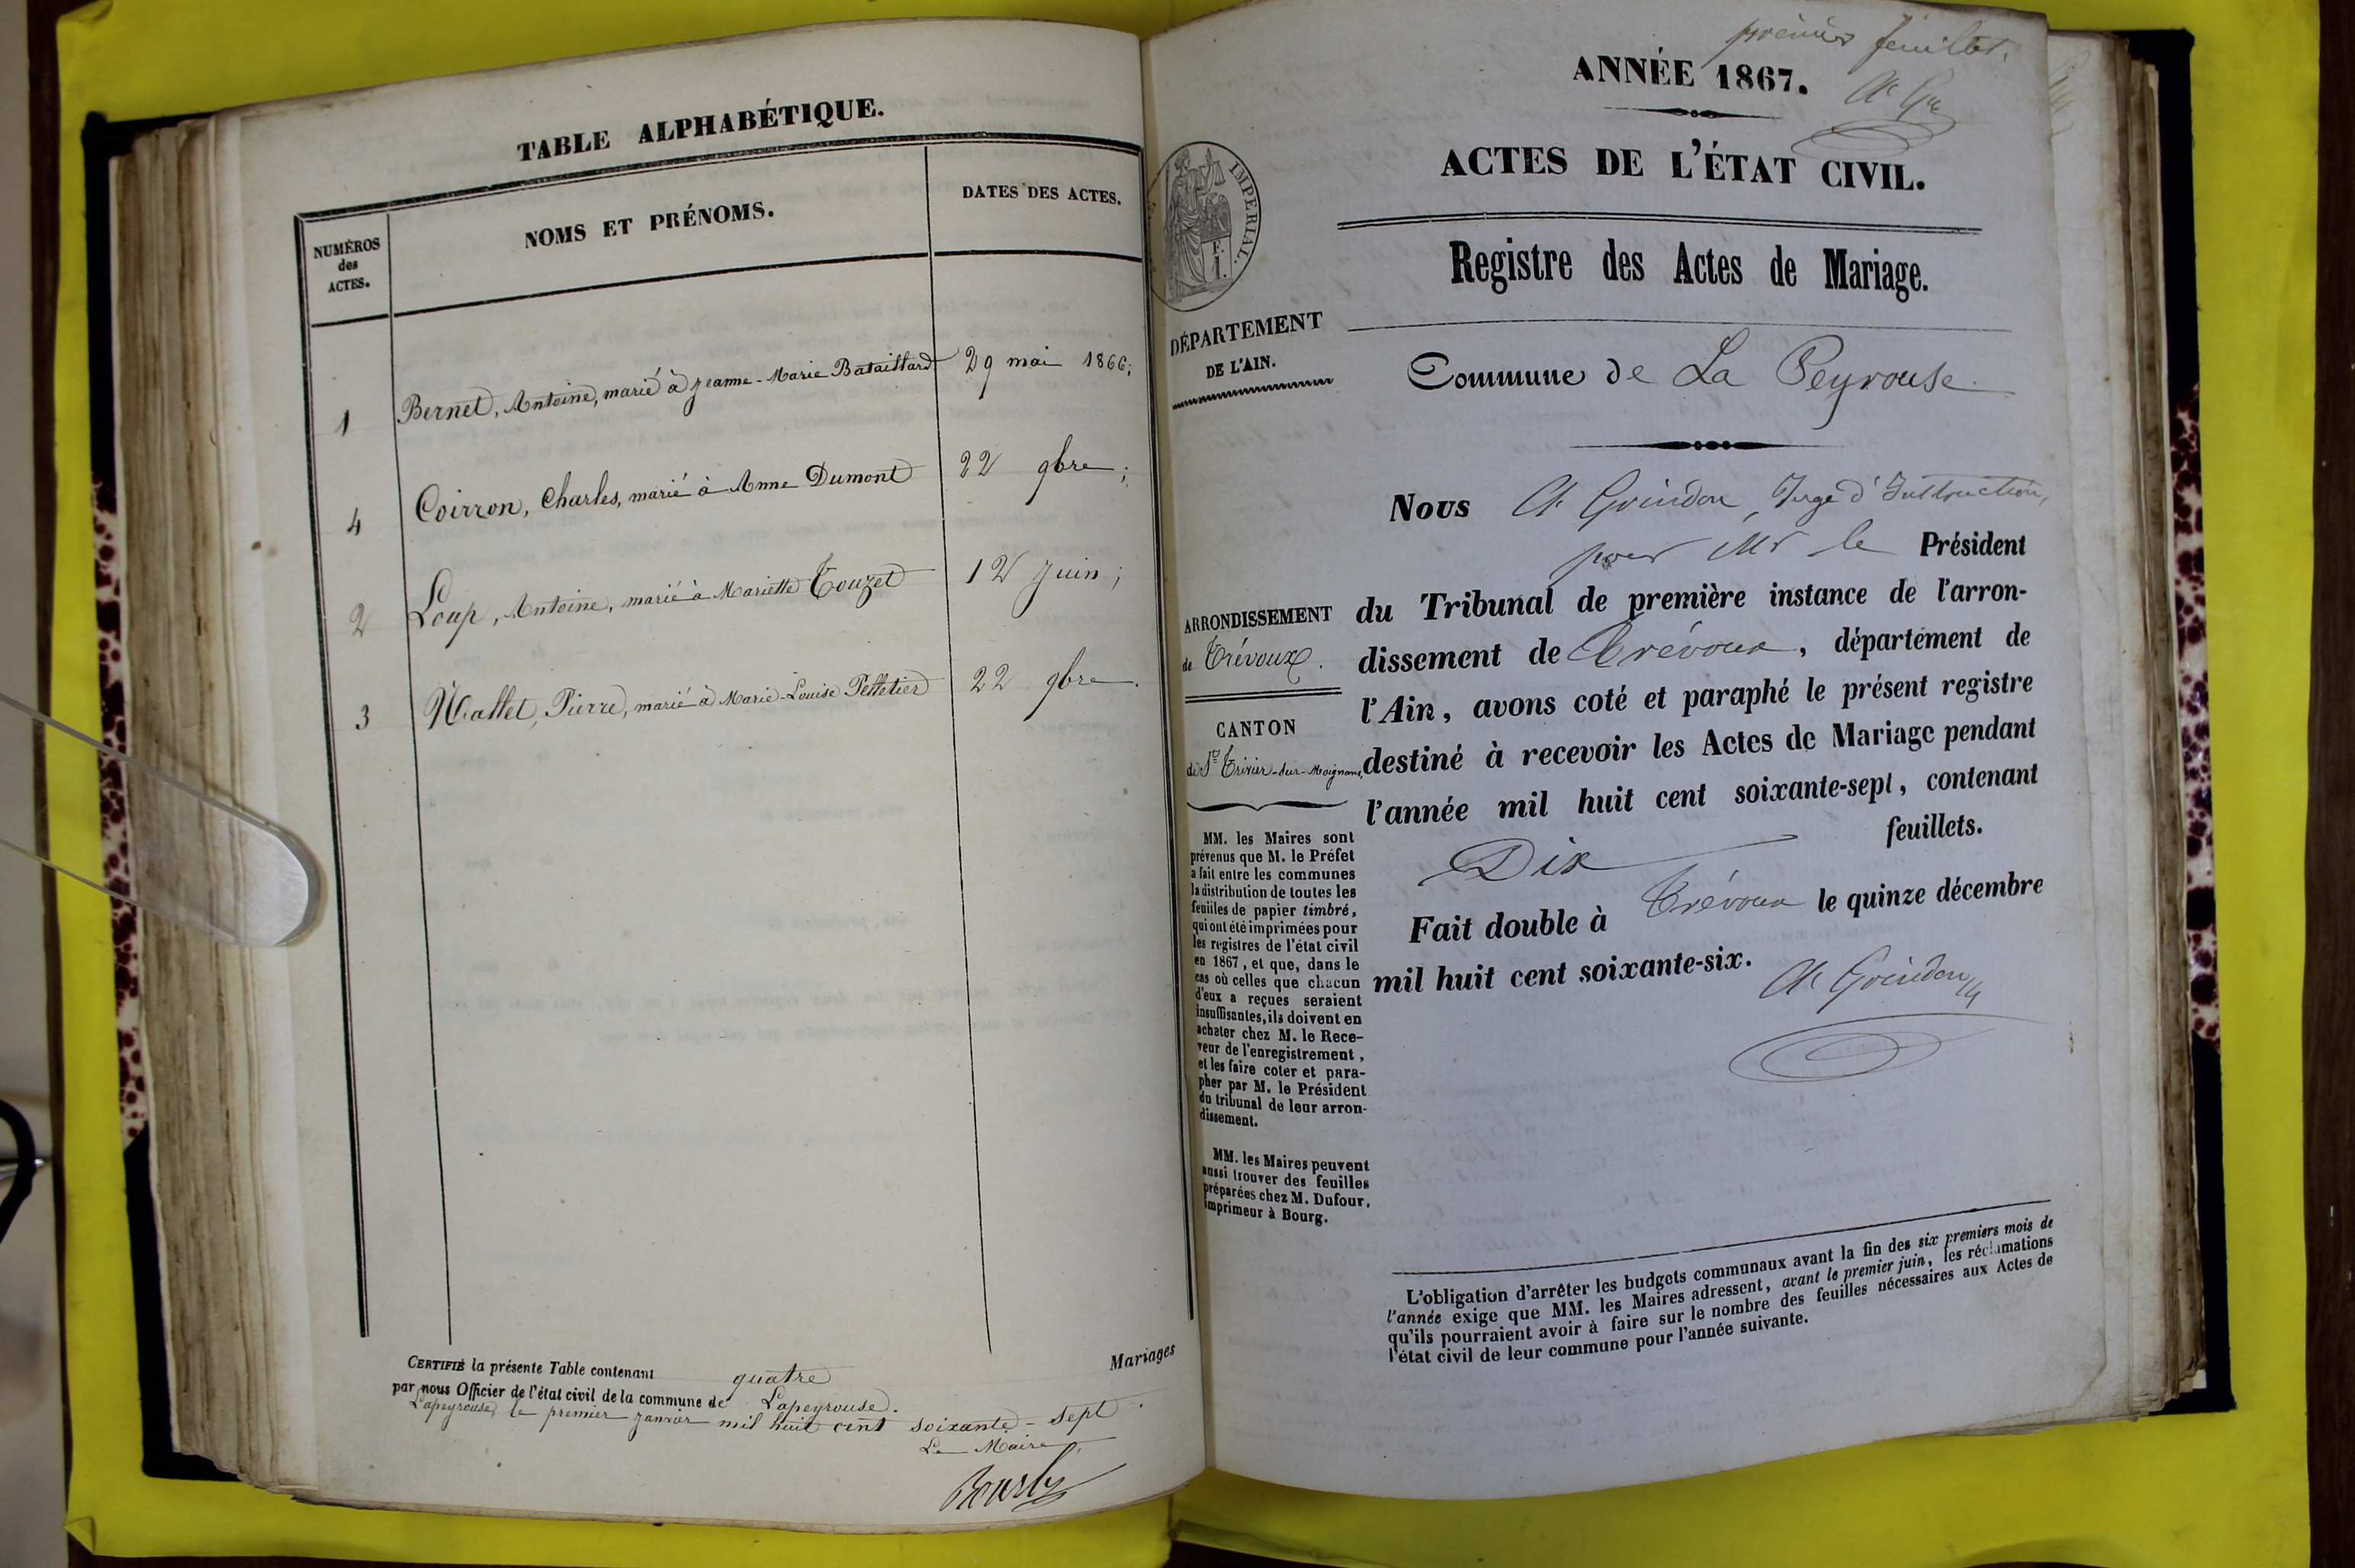 TABLE ALPHABÉTIQUE.
NUMÉROS
des
ACTES.
NOMS ET PRÉNOMS.
DATES DES ACTES.
1 Bernet, Antoine, marié à Jeanne-Marie Bataillard 29 mai 1866;
4 Coirron, Charles, marié à Anne Dumont 22 9bre;
2 Loup, Antoine, marié à Mariette Touzet 12 Juin;
3 Mallet, Pierre, marié à Marie-Louise Pelletier 22 9bre.
CERTIFIÉ la présente Table contenant quatre Mariages
par nous Officier de l'état civil de la commune de Lapeyrouse.
Lapeyrouse, le premier janvier mil huit cent soixante-sept.
Le Maire,
premier feuillet.
ANNÉE 1867.
ACTES DE L'ÉTAT CIVIL.
IMPÉRIAL.
F.
1.
Registre des Actes de Mariage.
DÉPARTEMENT
DE L'AIN.
Commune de La Peyrouse
Nous Ch Goindon, Juge d'Instruction,
pour Mr le Président
du Tribunal de première instance de l'arron-
dissement de Trévoux, département de
l'Ain, avons coté et paraphé le présent registre
destiné à recevoir les Actes de Mariage pendant
l'année mil huit cent soixante-sept, contenant
Dix feuillets.
Fait double à Trévoux le quinze décembre
mil huit cent soixante-six.
Ch Goindon
ARRONDISSEMENT
de Trévoux.
CANTON
de St Trivier-sur-Moignans,
MM. les Maires sont
prévenus que M. le Préfet
a fait entre les communes
la distribution de toutes les
feuilles de papier timbré,
qui ont été imprimées pour
les registres de l'état civil
en 1867, et que, dans le
cas où celles que chacun
d'eux a reçues seraient
insuffisantes, ils doivent en
acheter chez M. le Rece-
veur de l'enregistrement,
et les faire coter et para-
pher par M. le Président
du tribunal de leur arron-
dissement.
MM. les Maires peuvent
aussi trouver des feuilles
préparées chez M. Dufour,
imprimeur à Bourg.
L'obligation d'arrêter les budgets communaux avant la fin des six premiers mois de
l'année exige que MM. les Maires adressent, avant le premier juin, les réclamations
qu'ils pourraient avoir à faire sur le nombre des feuilles nécessaires aux Actes de
l'état civil de leur commune pour l'année suivante.